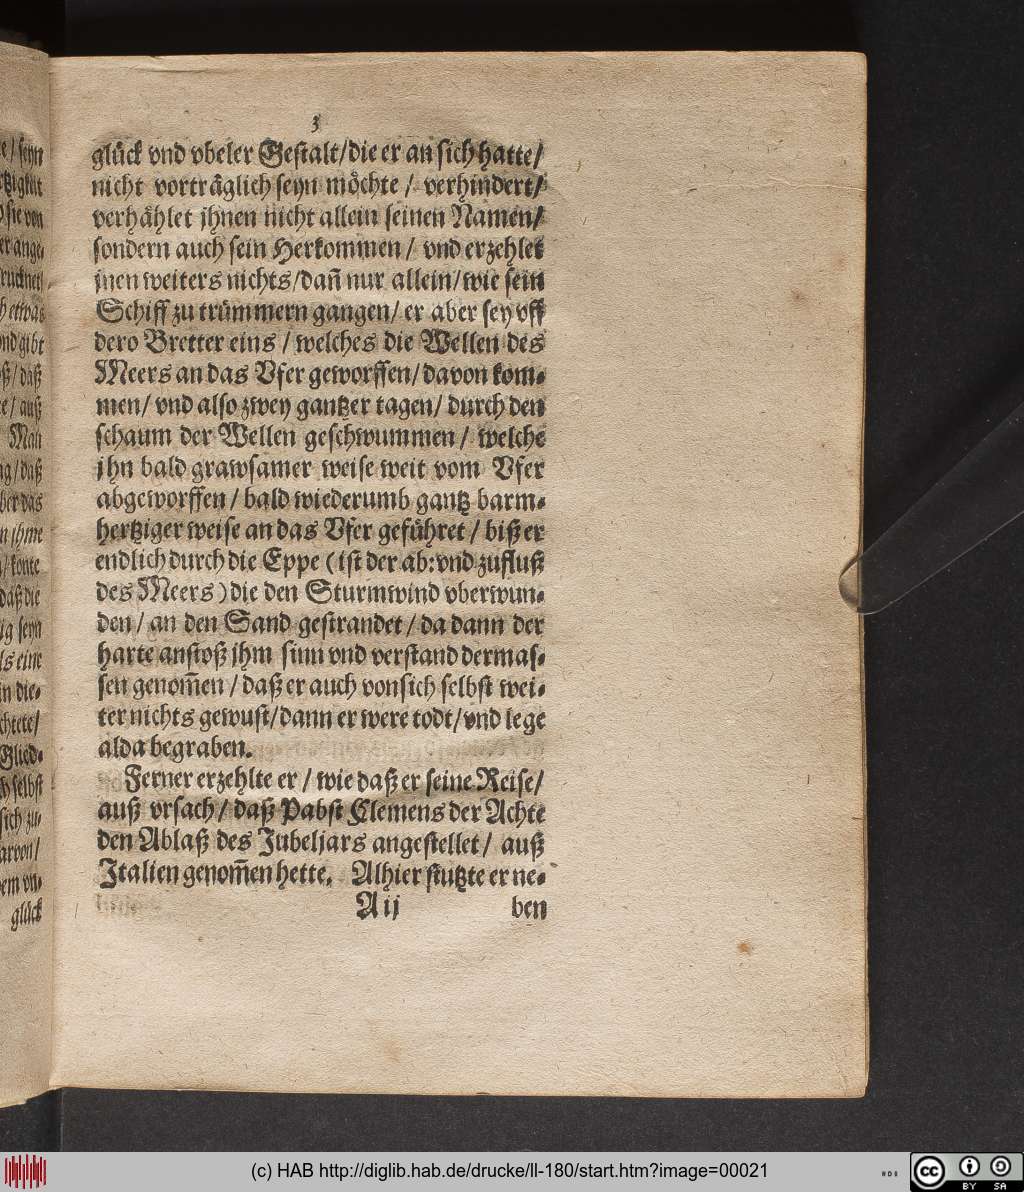 3
glück vnd vbeler Gestalt/die er an sich hatte/
nicht vorträglich seyn möchte / verhindert/
verhählet jhnen nicht allein seinen Namen/
sondern auch sein Herkommen / vnd erzehlet
jnen weiters nichts/dañ nur allein/wie sein
Schiff zu trümmern gangen/ er aber sey vff
dero Bretter eins / welches die Wellen des
Meers an das Vfer geworffen/davon kom-
men/ vnd also zwey gantzer tagen/ durch den
schaum der Wellen geschwummen / welche
jhn bald grawsamer weise weit vom Vfer
abgeworffen / bald wiederumb gantz barm-
hertziger weise an das Vfer geführet / biß er
endlich durch die Eppe (ist der ab:vnd zufluß
des Meers) die den Sturmwind vberwun-
den/ an den Sand gestrandet / da dann der
harte anstoß jhm sinn vnd verstand dermas-
sen genom̃en / daß er auch von sich selbst wei-
ter nichts gewust/dann er were todt/vnd lege
alda begraben.
Ferner erzehlte er / wie daß er seine Reise/
auß vrsach / daß Pabst Clemens der Achte
den Ablaß des Jubeljars angestellet / auß
Italien genom̃en hette. Alhier stutzte er ne-
A ij ben
glück
(c) HAB http://diglib.hab.de/drucke/ll-180/start.htm?image=00021
cc BY SA